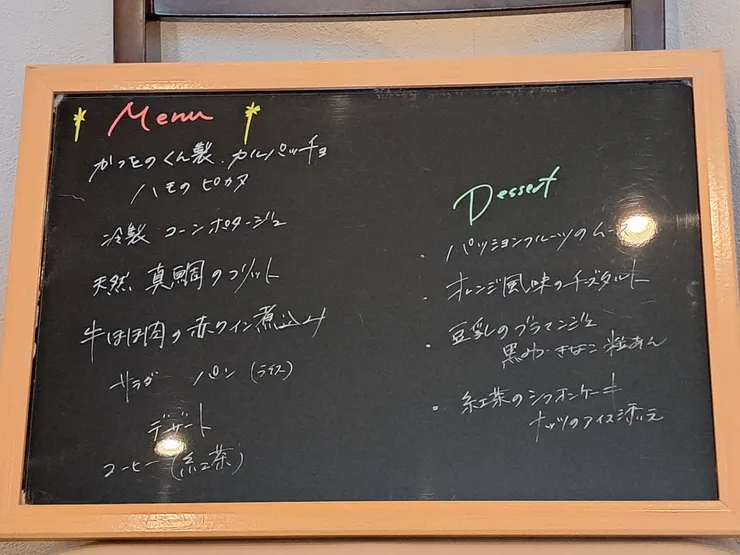 Menu
かつをのくん製、カルパッチョ
ハモのピカタ
冷製 コーンポタージュ
天然 真鯛のフリット
牛ほほ肉の赤ワイン煮込み
サラダ パン (ライス)
デザート
コーヒー (紅茶)
Dessert
・パッションフルーツのムース
・オレンジ風味のチーズタルト
・豆乳のブラマンジェ
黒みつ・きなこ 粒あん
・紅茶のシフォンケーキ
ナッツのアイス添え